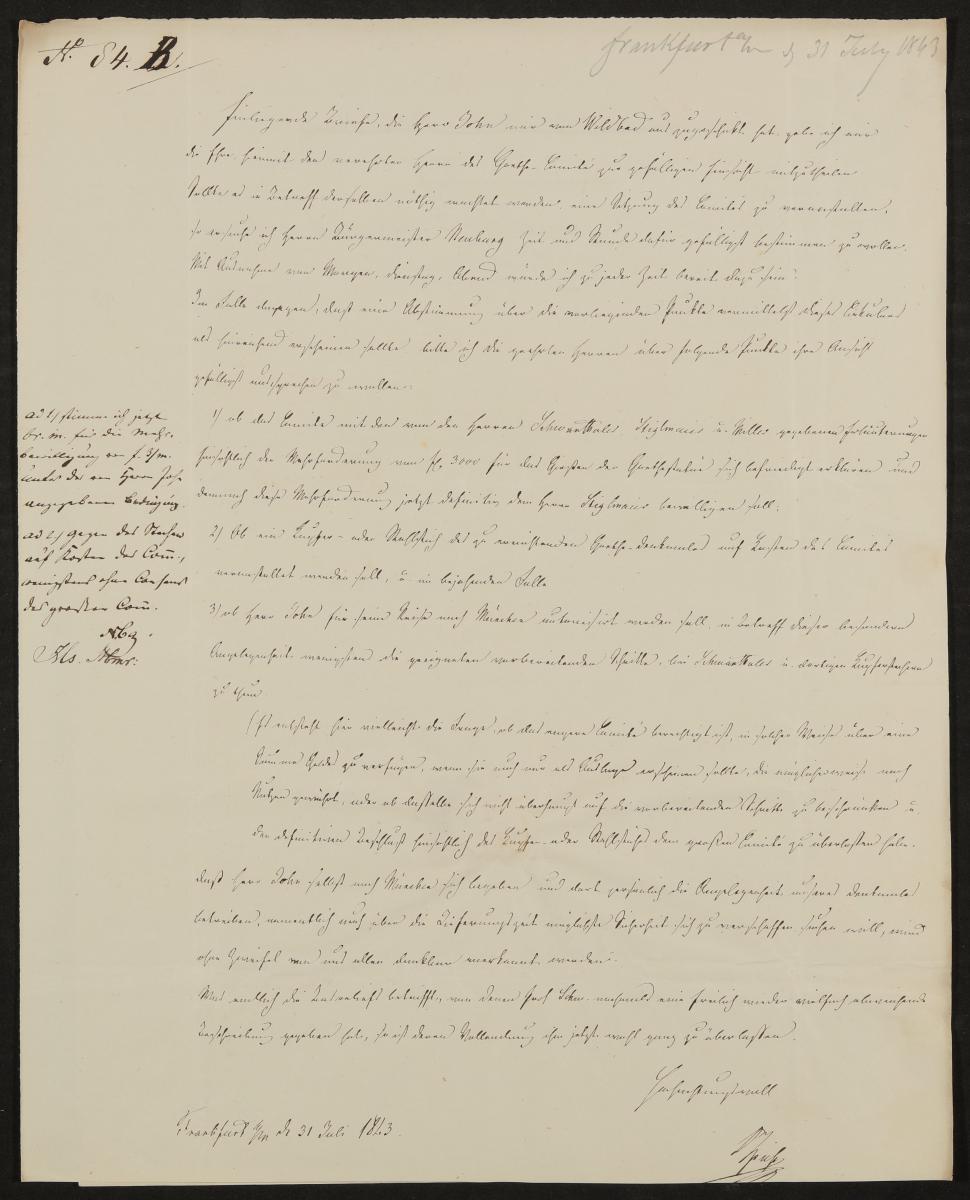 No 84. B.
Frankfurt a/m d 31 July 1843
Einliegende Briefe, die Herr John mir von Wildbad aus zugeschickt hat gebe ich mir
die Ehre hiermit den verehrten Herrn des Goethe-Comité zur gefälligen Einsicht mitzutheilen
Sollte es in Betreff derselben nöthig erachtet werden, eine Sitzung des Comités zu veranstalten,
so ersuche ich Herrn Bürgermeister Neuburg Zeit und Stunde dafür gefälligst bestimmen zu wollen.
Mit Ausnahme von Morgen, Dienstag, Abend würde ich zu jeder Zeit bereit dazu sein.
Im Falle dagegen, daß eine Abstimmung über die vorliegenden Punkte vermittelst dieses Cirkulars
als hinreichend erscheinen sollte bitte ich die geehrten Herren über folgende Punkte ihre Ansicht
gefälligst aussprechen zu wollen:
1/ ob das Comité mit den von den Herren Schwanthaler, Stiglmaier u. Miller gegebenen Erläuterungen
hinsichtlich der Mehrforderung von fl. 3000 für das Gießen der Goethestatue sich befriedigt erklären und
demnach diese Mehrforderung jetzt definitiv dem Herrn Stiglmaier bewilligen soll;
2/ Ob ein Kupfer- oder Stahlstich des zu errichtenden Goethe-Denkmales auf Kosten des Comités
veranstaltet werden soll, u. im bejahenden Falle
3/ ob Herr John für seine Reise nach München autorisirt werden soll, in Betreff dieser besondern
Angelegenheit wenigstens die geeigneten vorbereitenden Schritte bei Schwanthaler u. dortigen Kupferstechern
zu thun.
(Es entsteht hier vielleicht die Frage, ob das engere Comité berechtigt ist, in solcher Weise über eine
Summe Geldes zu verfügen, wenn sie auch nur als Auslage erscheinen sollte, die möglicherweise noch
Nutzen gewährt, oder ob dasselbe sich nicht überhaupt auf die vorbereitenden Schritte zu beschränken u.
den definitiven Beschluß hinsichtlich des Kupfer- oder Stahlstichs dem großen Comité zu überlassen habe.
Daß Herr John selbst nach München sich begeben und dort persönlich die Angelegenheit unseres Denkmales
betreiben, namentlich auch über die Lieferungszeit möglichste Sicherheit sich zu verschaffen suchen will, wird
ohne Zweifel von uns allen dankbar anerkannt werden.
Was endlich die Basreliefs betrifft, von denen Prof Schw. nochmals eine freilich wieder vielfach abweichende
Beschreibung gegeben hat, so ist deren Vollendung ihm jetzt wohl ganz zu überlassen.
Hochachtungsvoll
Frankfurt a/m d 31 Juli 1843.
Spieß
ad 1/ stimme ich jetzt
br. m. für die Mehr-
bewilligung von f. 3/m.
unter der von Herrn John
angegebenen Bedingung.
ad 2/ gegen das Stechen
auf Kosten des Com.,
wenigstens ohne Consens
des großen Com.
Nbg.